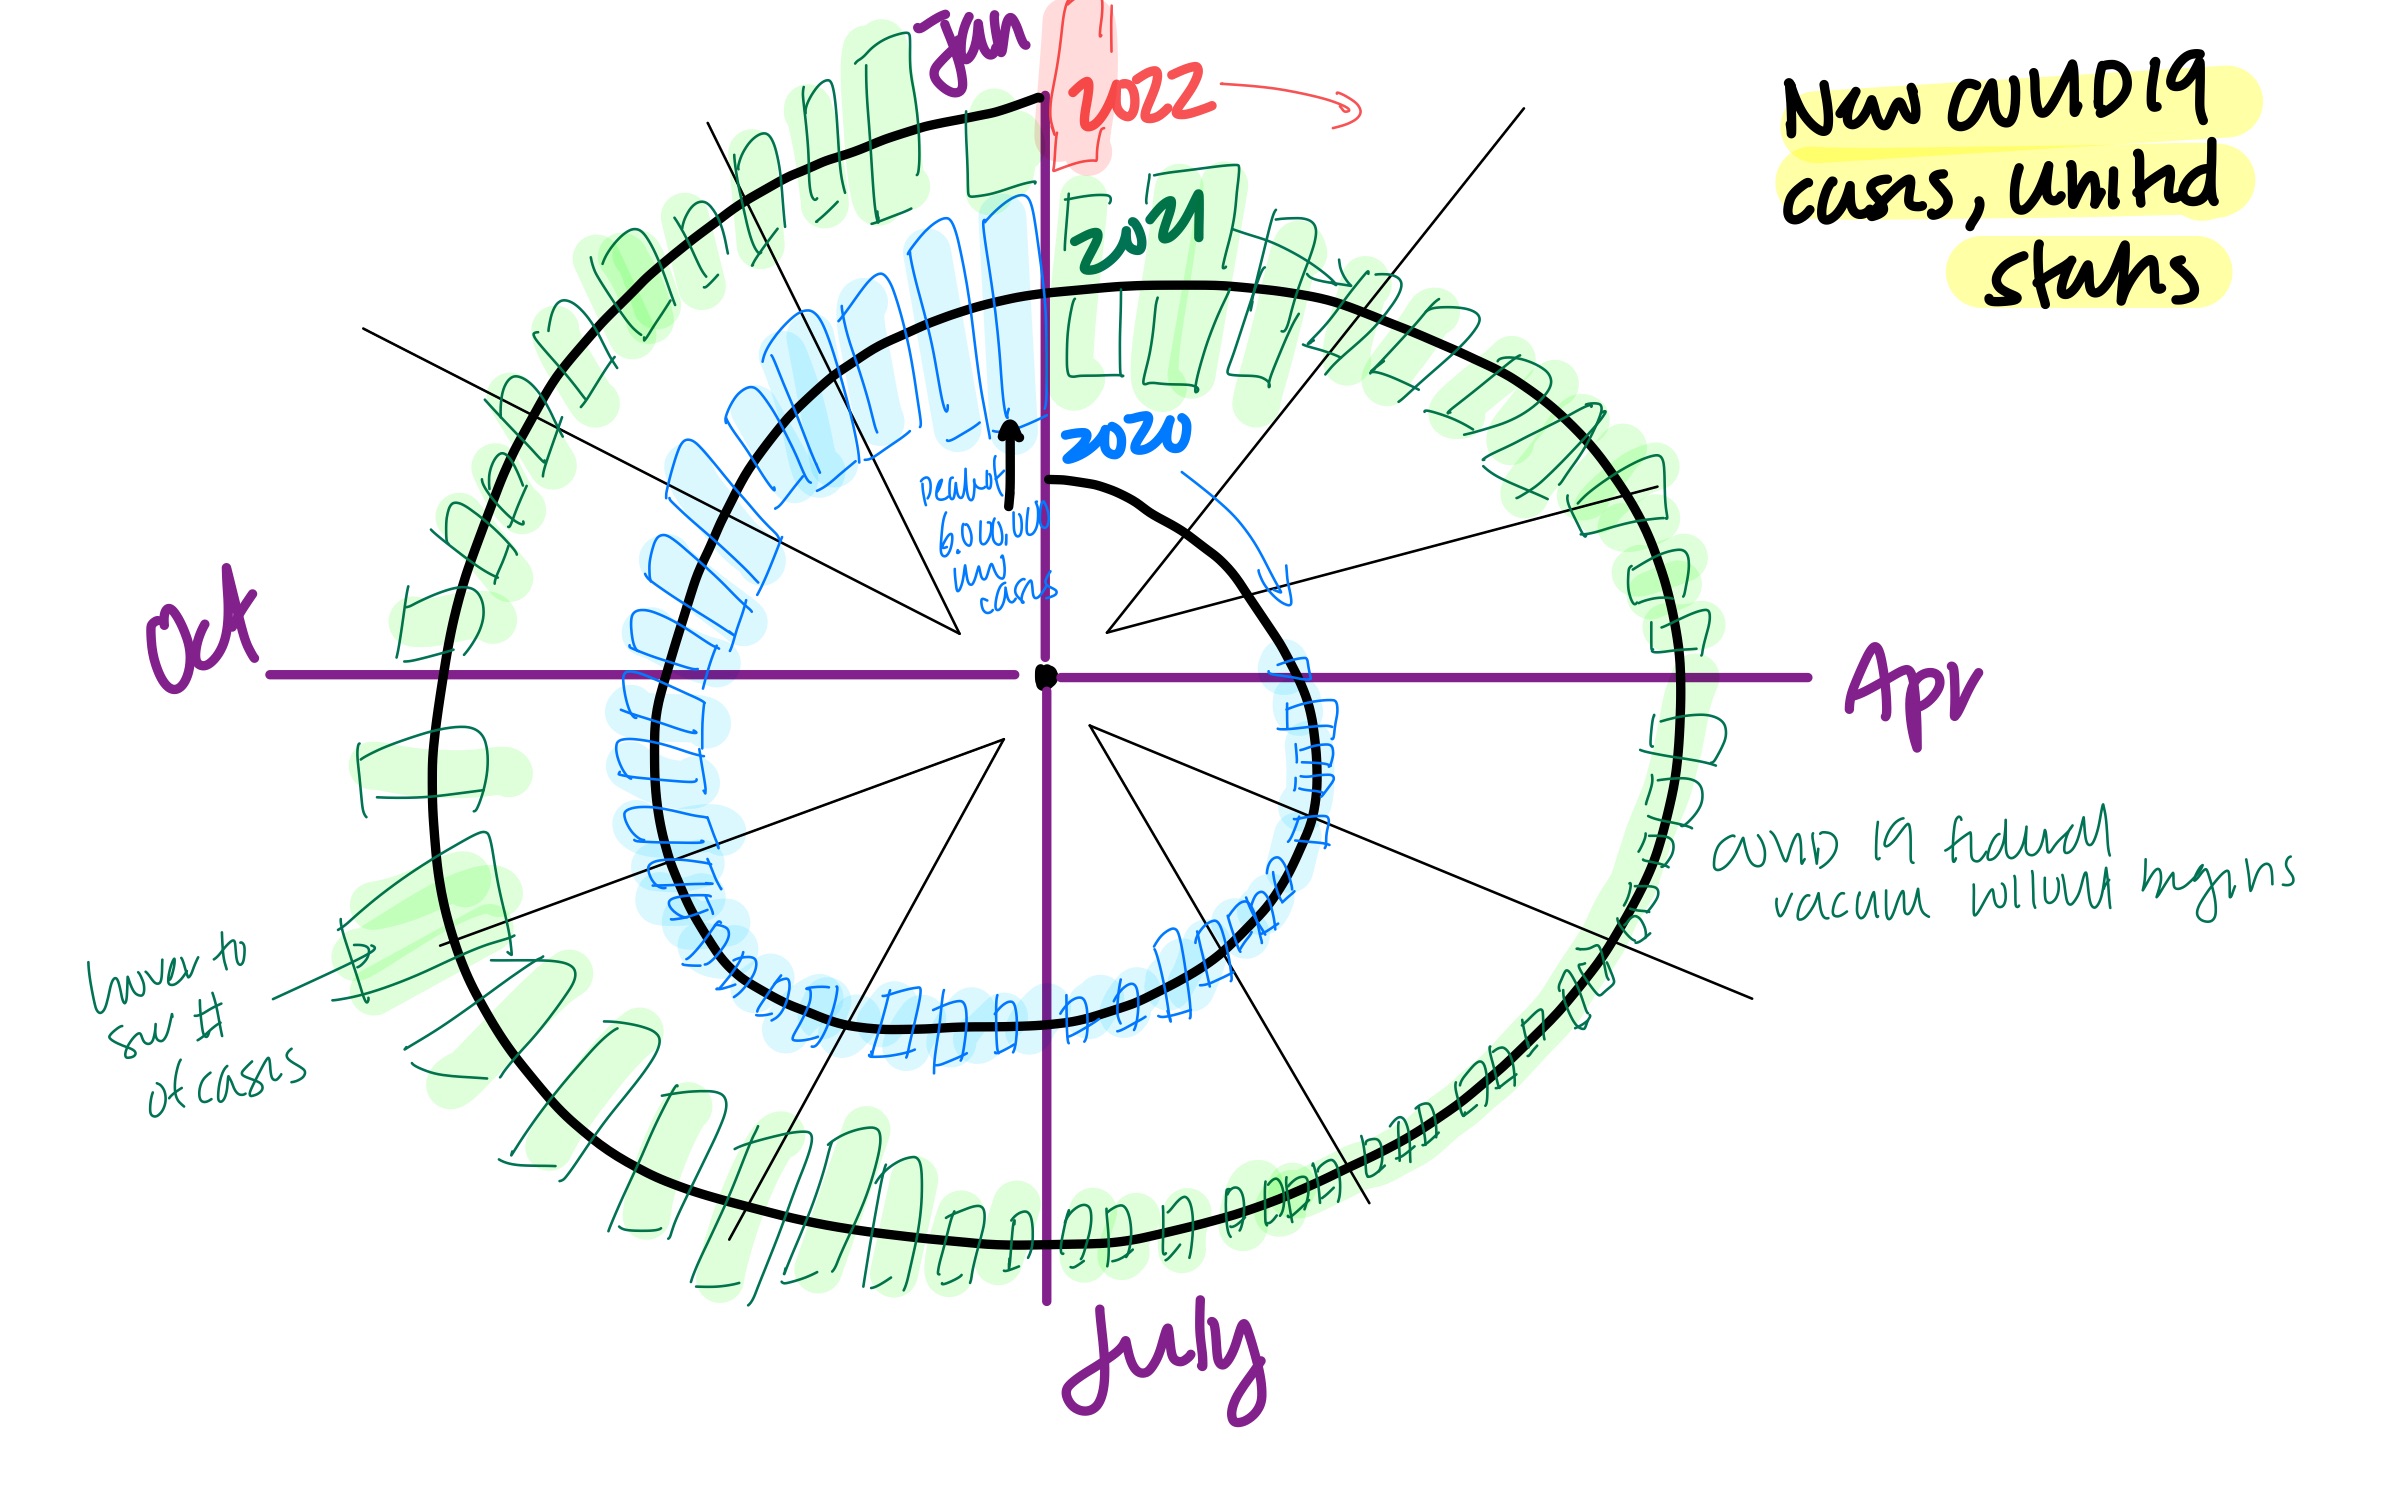 New COVID 19
cases, United
states
Jan
2022
2021
2020
peak at
6,000,000
new
cases
Oct
Apr
COVID 19 federal
vaccine rollout begins
hover to
see #
of cases
July